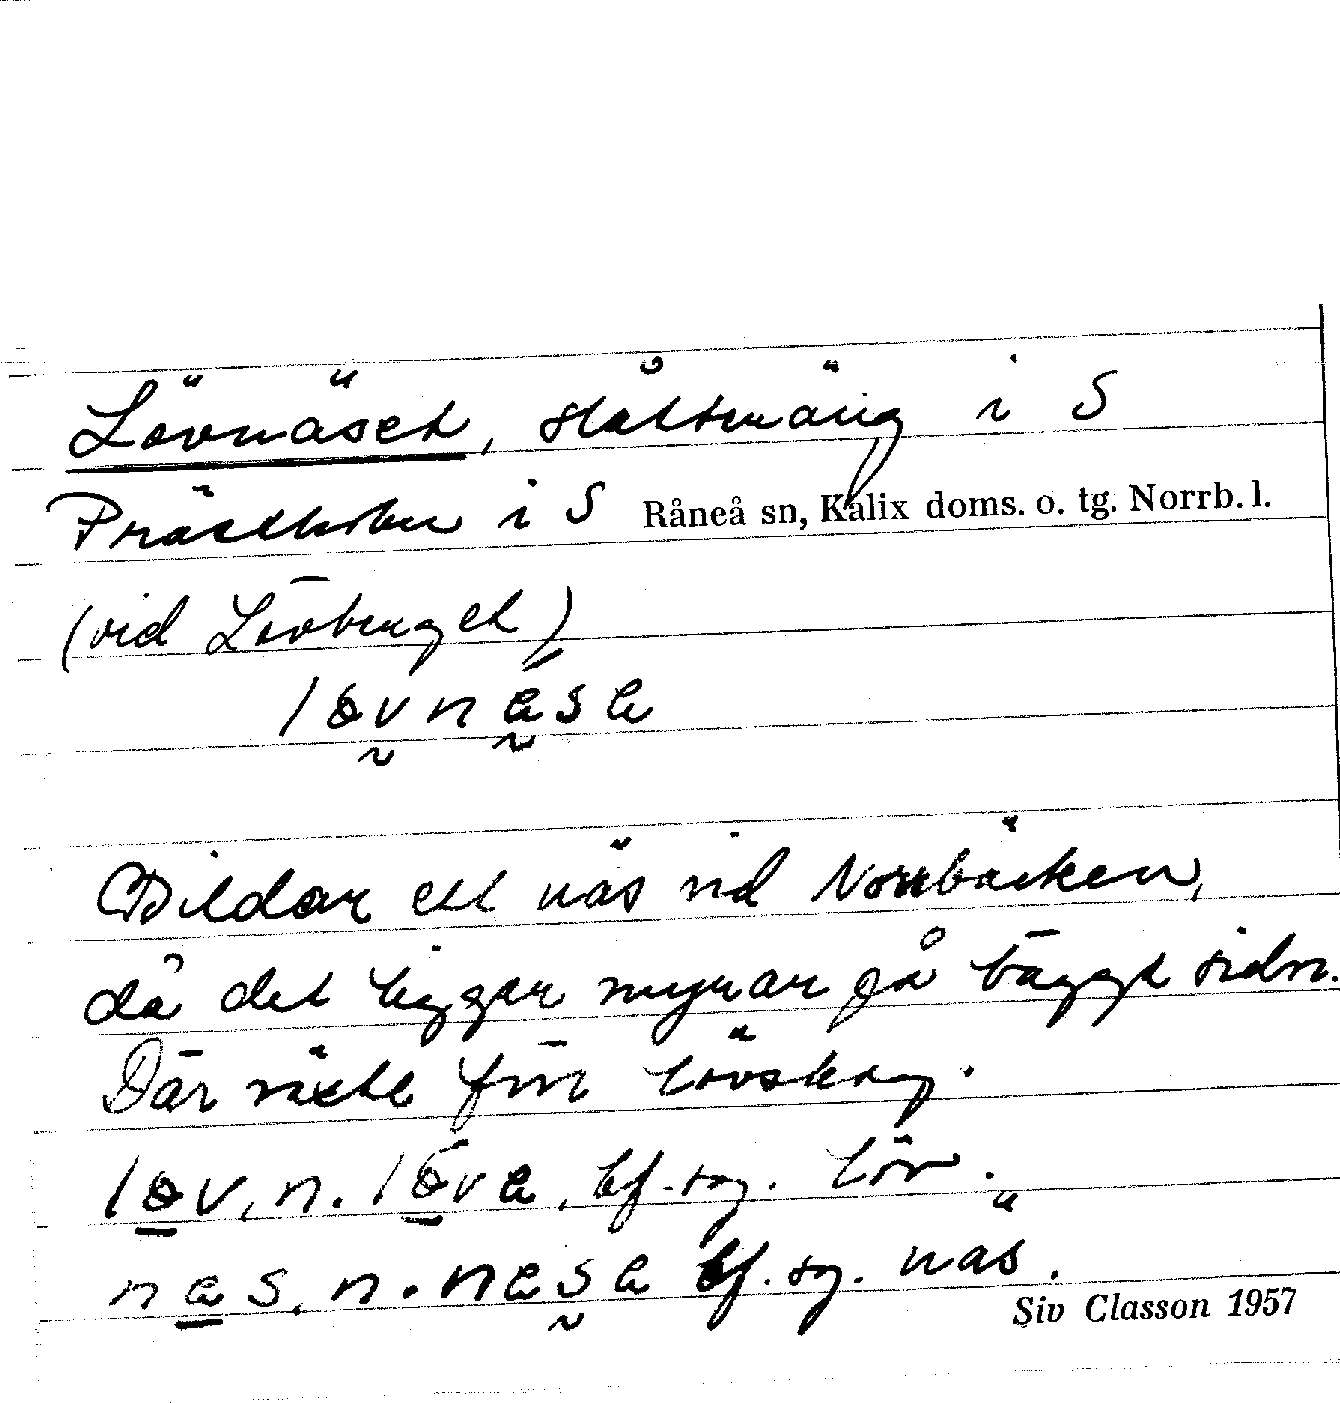 Lövnäset, slåttermäng i S
Prästholm i S Råneå sn, Kalix doms. o. tg. Norrb. l.
(vid Lövberget)
Bildar ett näs vid Norrbäcken,
då det ligger myrar på bägge sidor.
Där växte fin lövskog.
löv, n. löve, bf. sg. löv.
näs, n. näse bf. sg. näs.
Siv Classon 1957